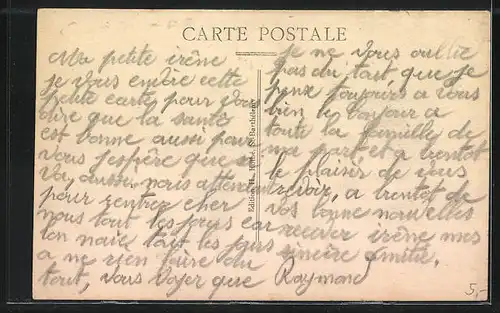 CARTE POSTALE
Ma petite irène
je vous envoie cette
petite carte pour vous
dire que la santé
est bonne aussi pour
vous j'espière que
aussi nous attendons
pour rentrer cher
nous tout les jours car
tout les jours
a ne rien faire du
tout, vous voyer que
je ne vous oublie
pas du tout que je
pense toujours a vous
bien le bonjour a
toute la famille de
ma part et a bientot
le plaisir de vous
revoir, a bientot de
vos bonne nouvelles
recever irène mes
sincère amitié,
Raymond
5,-